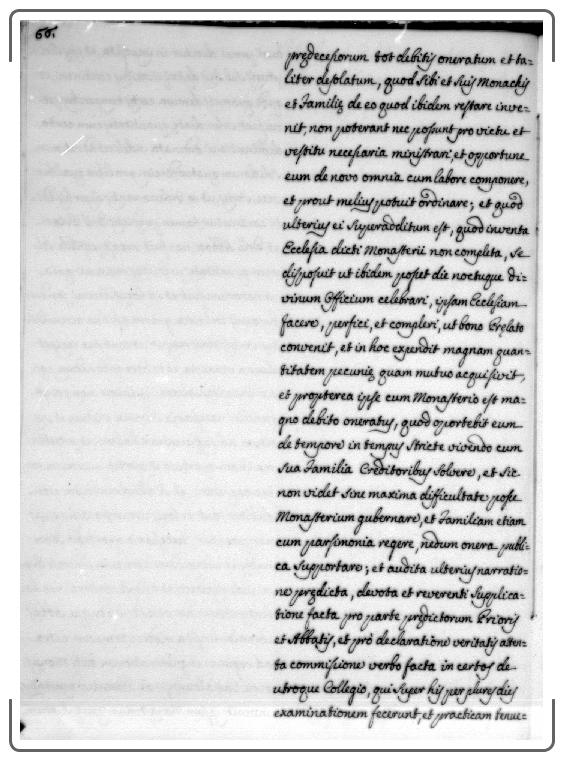 66.
prędecessorum tot debitis oneratum et ta=
liter desolatum, quod sibi et suis Monachis
et Familię de eo quod ibidem restare inve=
nit, non poterant nec possunt pro victu et
vestitu necessaria ministrari, et opportune
eum de novo omnia cum labore componere,
et prout melius potuit ordinare; et quod
ulterius ei superadditum est, quod inventa
Ecclesia dicti Monasterii non completa, se
disposuit ut ibidem posset die noctuque di=
vinum Officium celebrari, ipsam Ecclesiam
facere, perfici, et compleri, ut bono Pręlato
convenit, et in hoc expendit magnam quan=
titatem pecunię quam mutuo acquisivit,
et propterea ipse cum Monasterio est ma=
gno debito oneratus, quod oportebit eum
de tempore in tempus stricte vivendo cum
sua Familia Creditoribus solvere, et sic
non videt sine maxima difficultate posse
Monasterium gubernare, et Familiam etiam
cum parsimonia regere, nedum onera publi=
ca supportare; et audita ulterius narratio=
ne prędicta, devota et reverenti supplica=
tione facta pro parte prędictorum Prioris
et Abbatis, et pro declaratione veritatis atten=
ta commissione verbo facta in certos de
utroque Collegio, qui super his per plures dies
examinationem fecerunt, et practicam tenue=